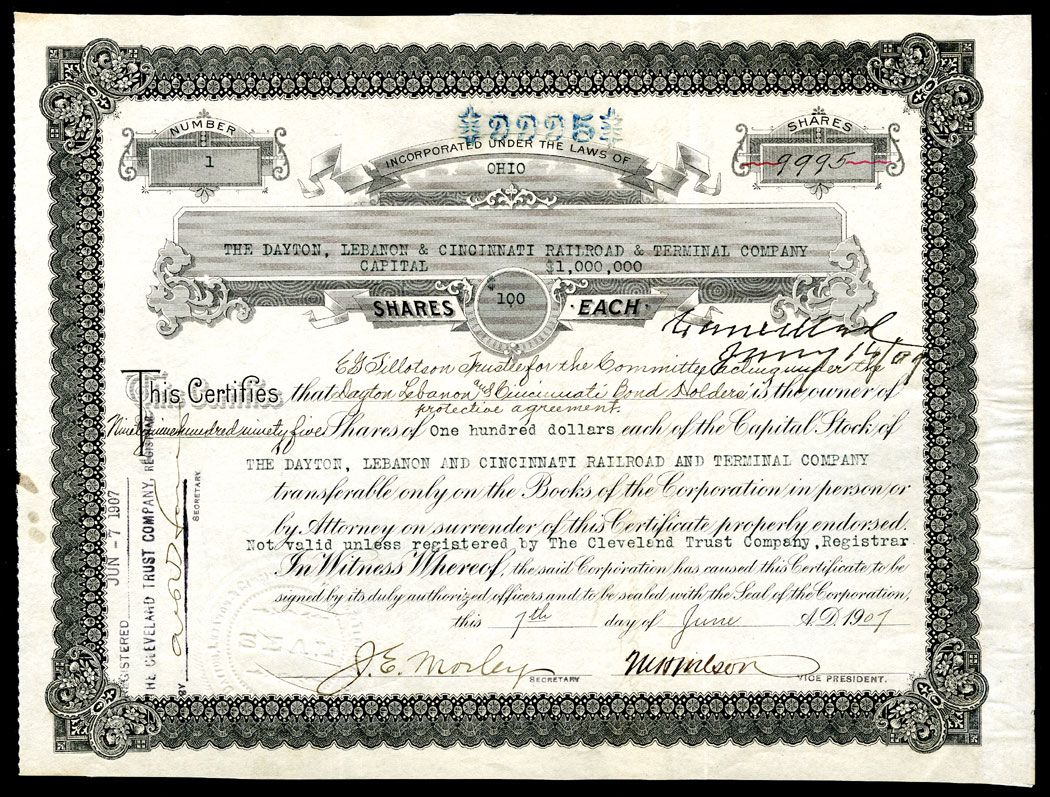 NUMBER
1
$9995$
INCORPORATED UNDER THE LAWS OF
OHIO
SHARES
9995
THE DAYTON, LEBANON & CINCINNATI RAILROAD & TERMINAL COMPANY
CAPITAL $1,000,000
SHARES $100 EACH
Cancelled
Jany 16/09
This Certifies that E G Tillotson Trustee for the Committee acting under the
Dayton Lebanon and Cincinnati Bond Holders' is the owner of
protective agreement.
Ninety nine hundred ninety five Shares of One hundred dollars each of the Capital Stock of
THE DAYTON, LEBANON AND CINCINNATI RAILROAD AND TERMINAL COMPANY
transferable only on the Books of the Corporation in person or
by Attorney on surrender of this Certificate properly endorsed.
Not valid unless registered by The Cleveland Trust Company, Registrar
In Witness Whereof, the said Corporation has caused this Certificate to be
signed by its duly authorized officers and to be sealed with the Seal of the Corporation,
this 7th day of June A.D. 1907
J. E. Morley SECRETARY
VICE PRESIDENT.
REGISTERED JUN - 7 1907
THE CLEVELAND TRUST COMPANY, REGISTRAR
BY
SECRETARY